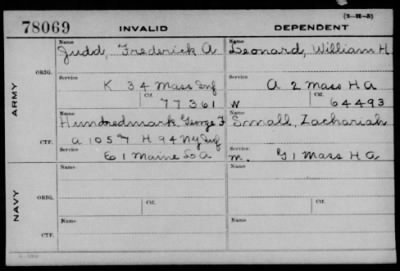 78069 INVALID DEPENDENT
(3-1112-3)
ARMY
ORIG.
Name
Judd, Frederick A
Name
Leonard, William H
Service
K 34 Mass Inf
Service
A 2 Mass H A
Ctf.
77361
W
Ctf.
64493
CTF.
Name
Hundredmark, George F
Name
Small, Zachariah
A 105 & H 94 NY Inf
Service
E 1 Maine L A
Service
m. G 1 Mass H A
NAVY
ORIG.
Name
Name
Service
Ctf.
Service
Ctf.
CTF.
Name
Name